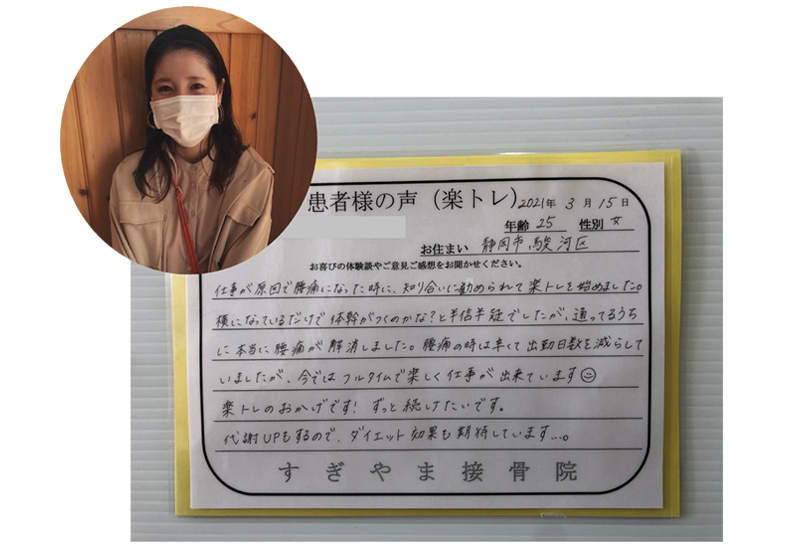 患者様の声（楽トレ）
2021年 3月 15日
年齢 25 性別 女
お住まい 静岡市駿河区
お喜びの体験談やご意見ご感想をお聞かせください。
仕事が原因で腰痛になった時に、知り合いに勧められて楽トレを始めました。
横になっているだけで体幹がつくのかな？と半信半疑でしたが、通ってるうち
に本当に腰痛が解消しました。腰痛の時は辛くて出勤日数を減らして
いましたが、今ではフルタイムで楽しく仕事が出来ています☺
楽トレのおかげです！ずっと続けたいです。
代謝UPもするので、ダイエット効果も期待しています…。
すぎやま接骨院